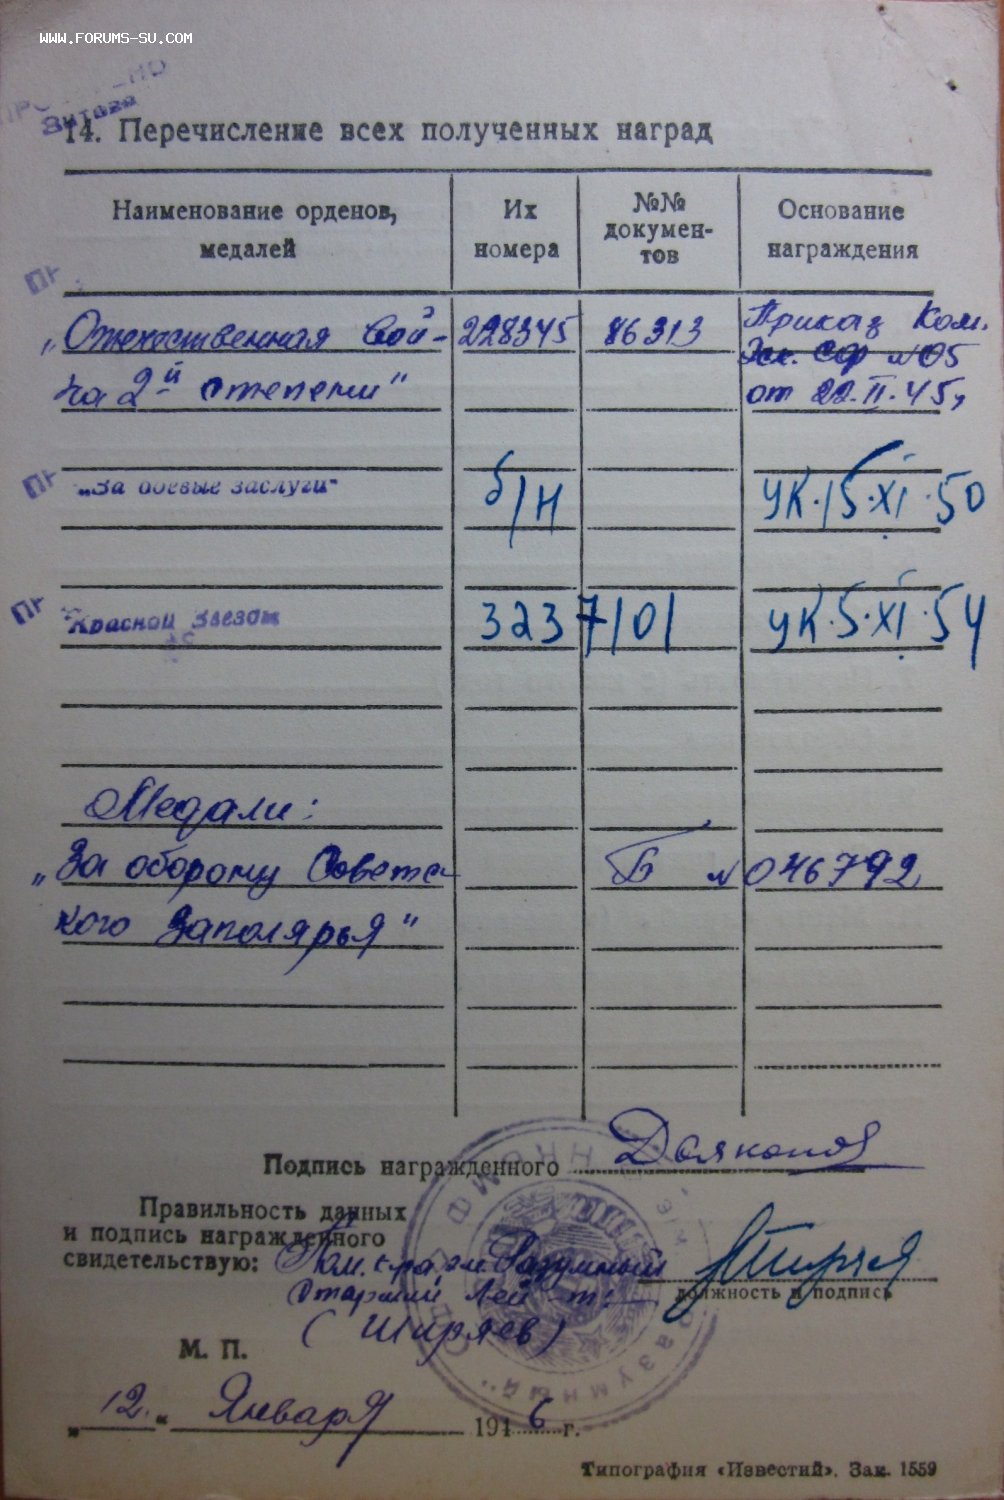 WWW.FORUMS-SU.COM
14. Перечисление всех полученных наград
Наименование орденов, медалей
Их номера
№№ докумен-тов
Основание награждения
„Отечественная Вой- 228345 86313 Приказ Ком.
Эск. СФ №05
на 2й степени" от 22.II.45г
„За боевые заслуги" б/н УК·15·XI·50
Красной Звезды 3237101 УК·5·XI·54
Медали:
„За оборону Советс- Б №046792
кого Заполярья"
Подпись награжденного
Правильность данных
и подпись награжденного
свидетельствую: Пом. к-ра эм. Разумный
должность и подпись
Старший Лей-т:
(Ширяев)
М. П.
„12." Января 1946 г.
Типография «Известий». Зак. 1559